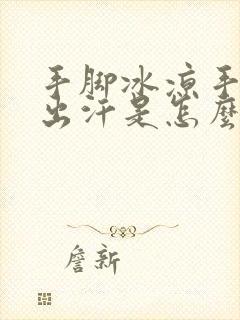 手脚冰凉手
出汗是怎麽
詹新